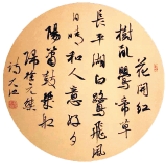 花開紅
樹亂鶯啼草
長平湖白鷺飛風
日晴和人意好夕
陽簫鼓幾船
歸徐元杰
詩